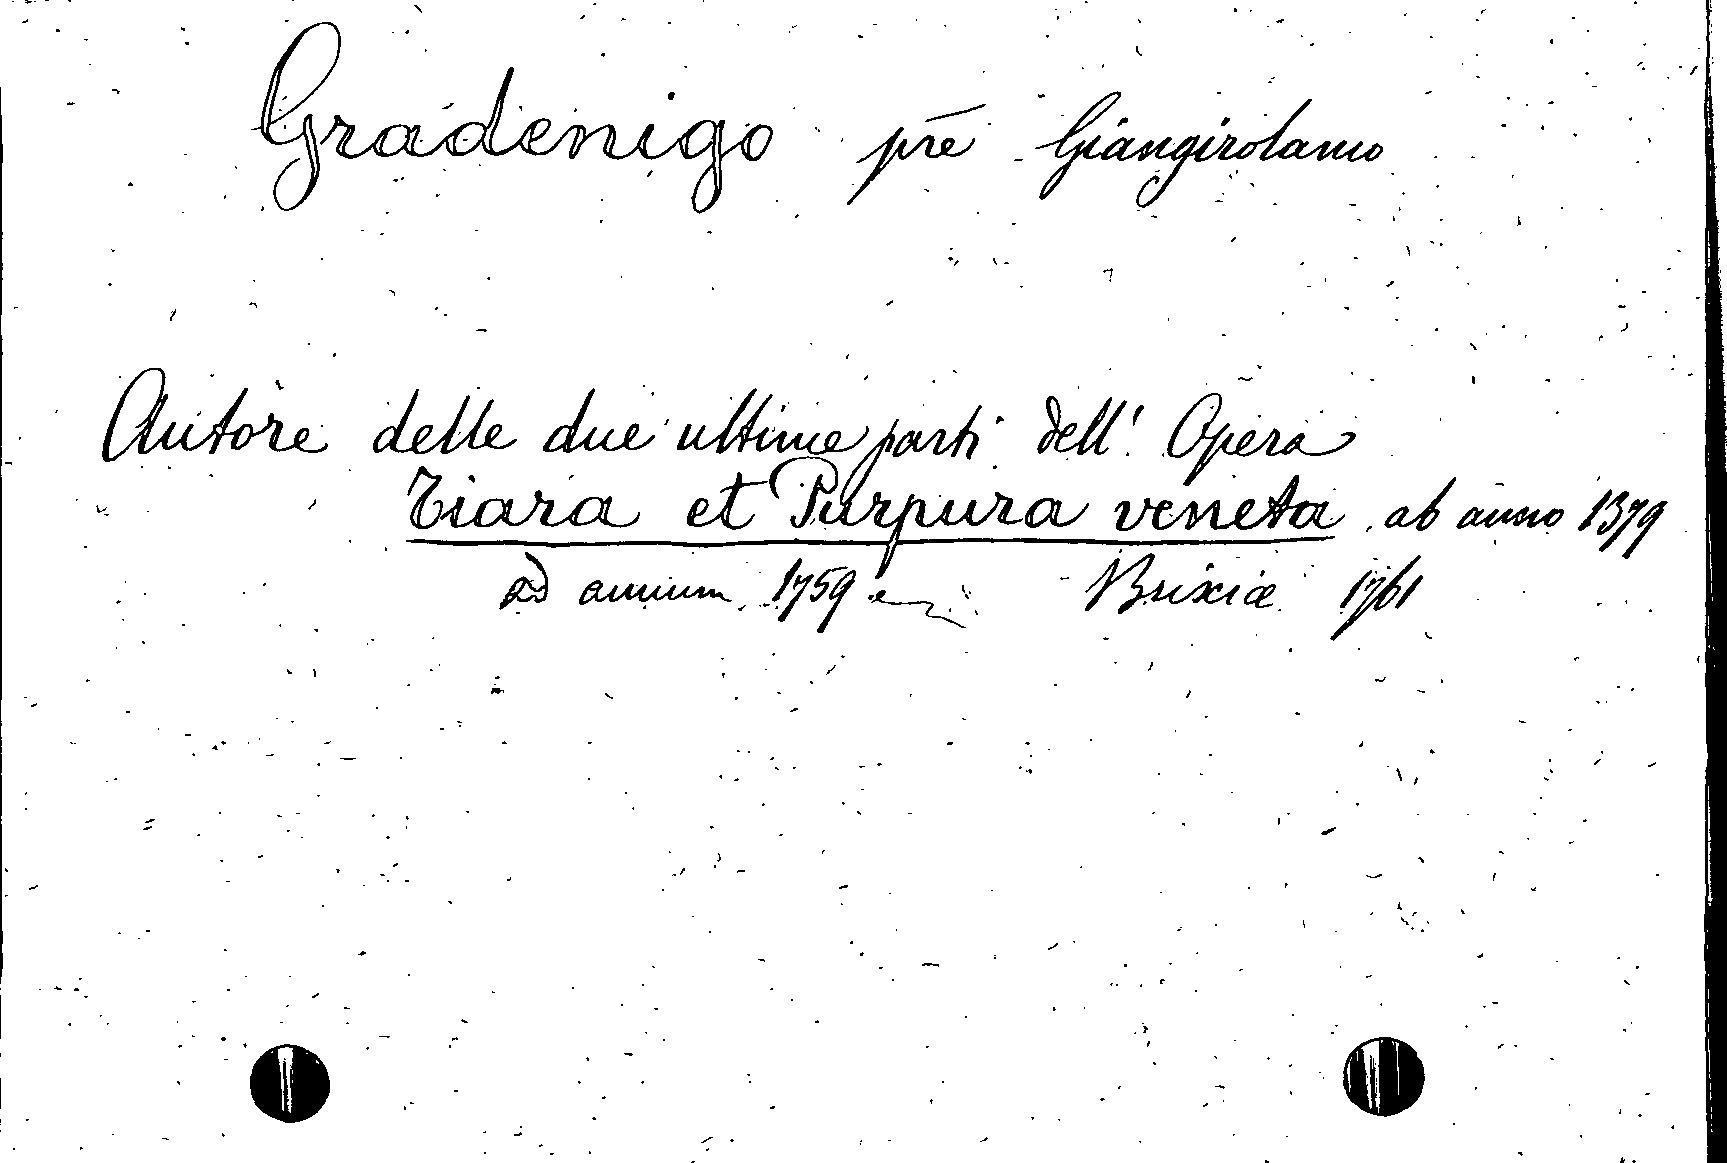 Gradenigo prē Giangirolamo
Autore delle due ultime parti dell' Opera
Tiara et Purpura veneta ab anno 1379
ad annum 1759 Brixiæ 1761